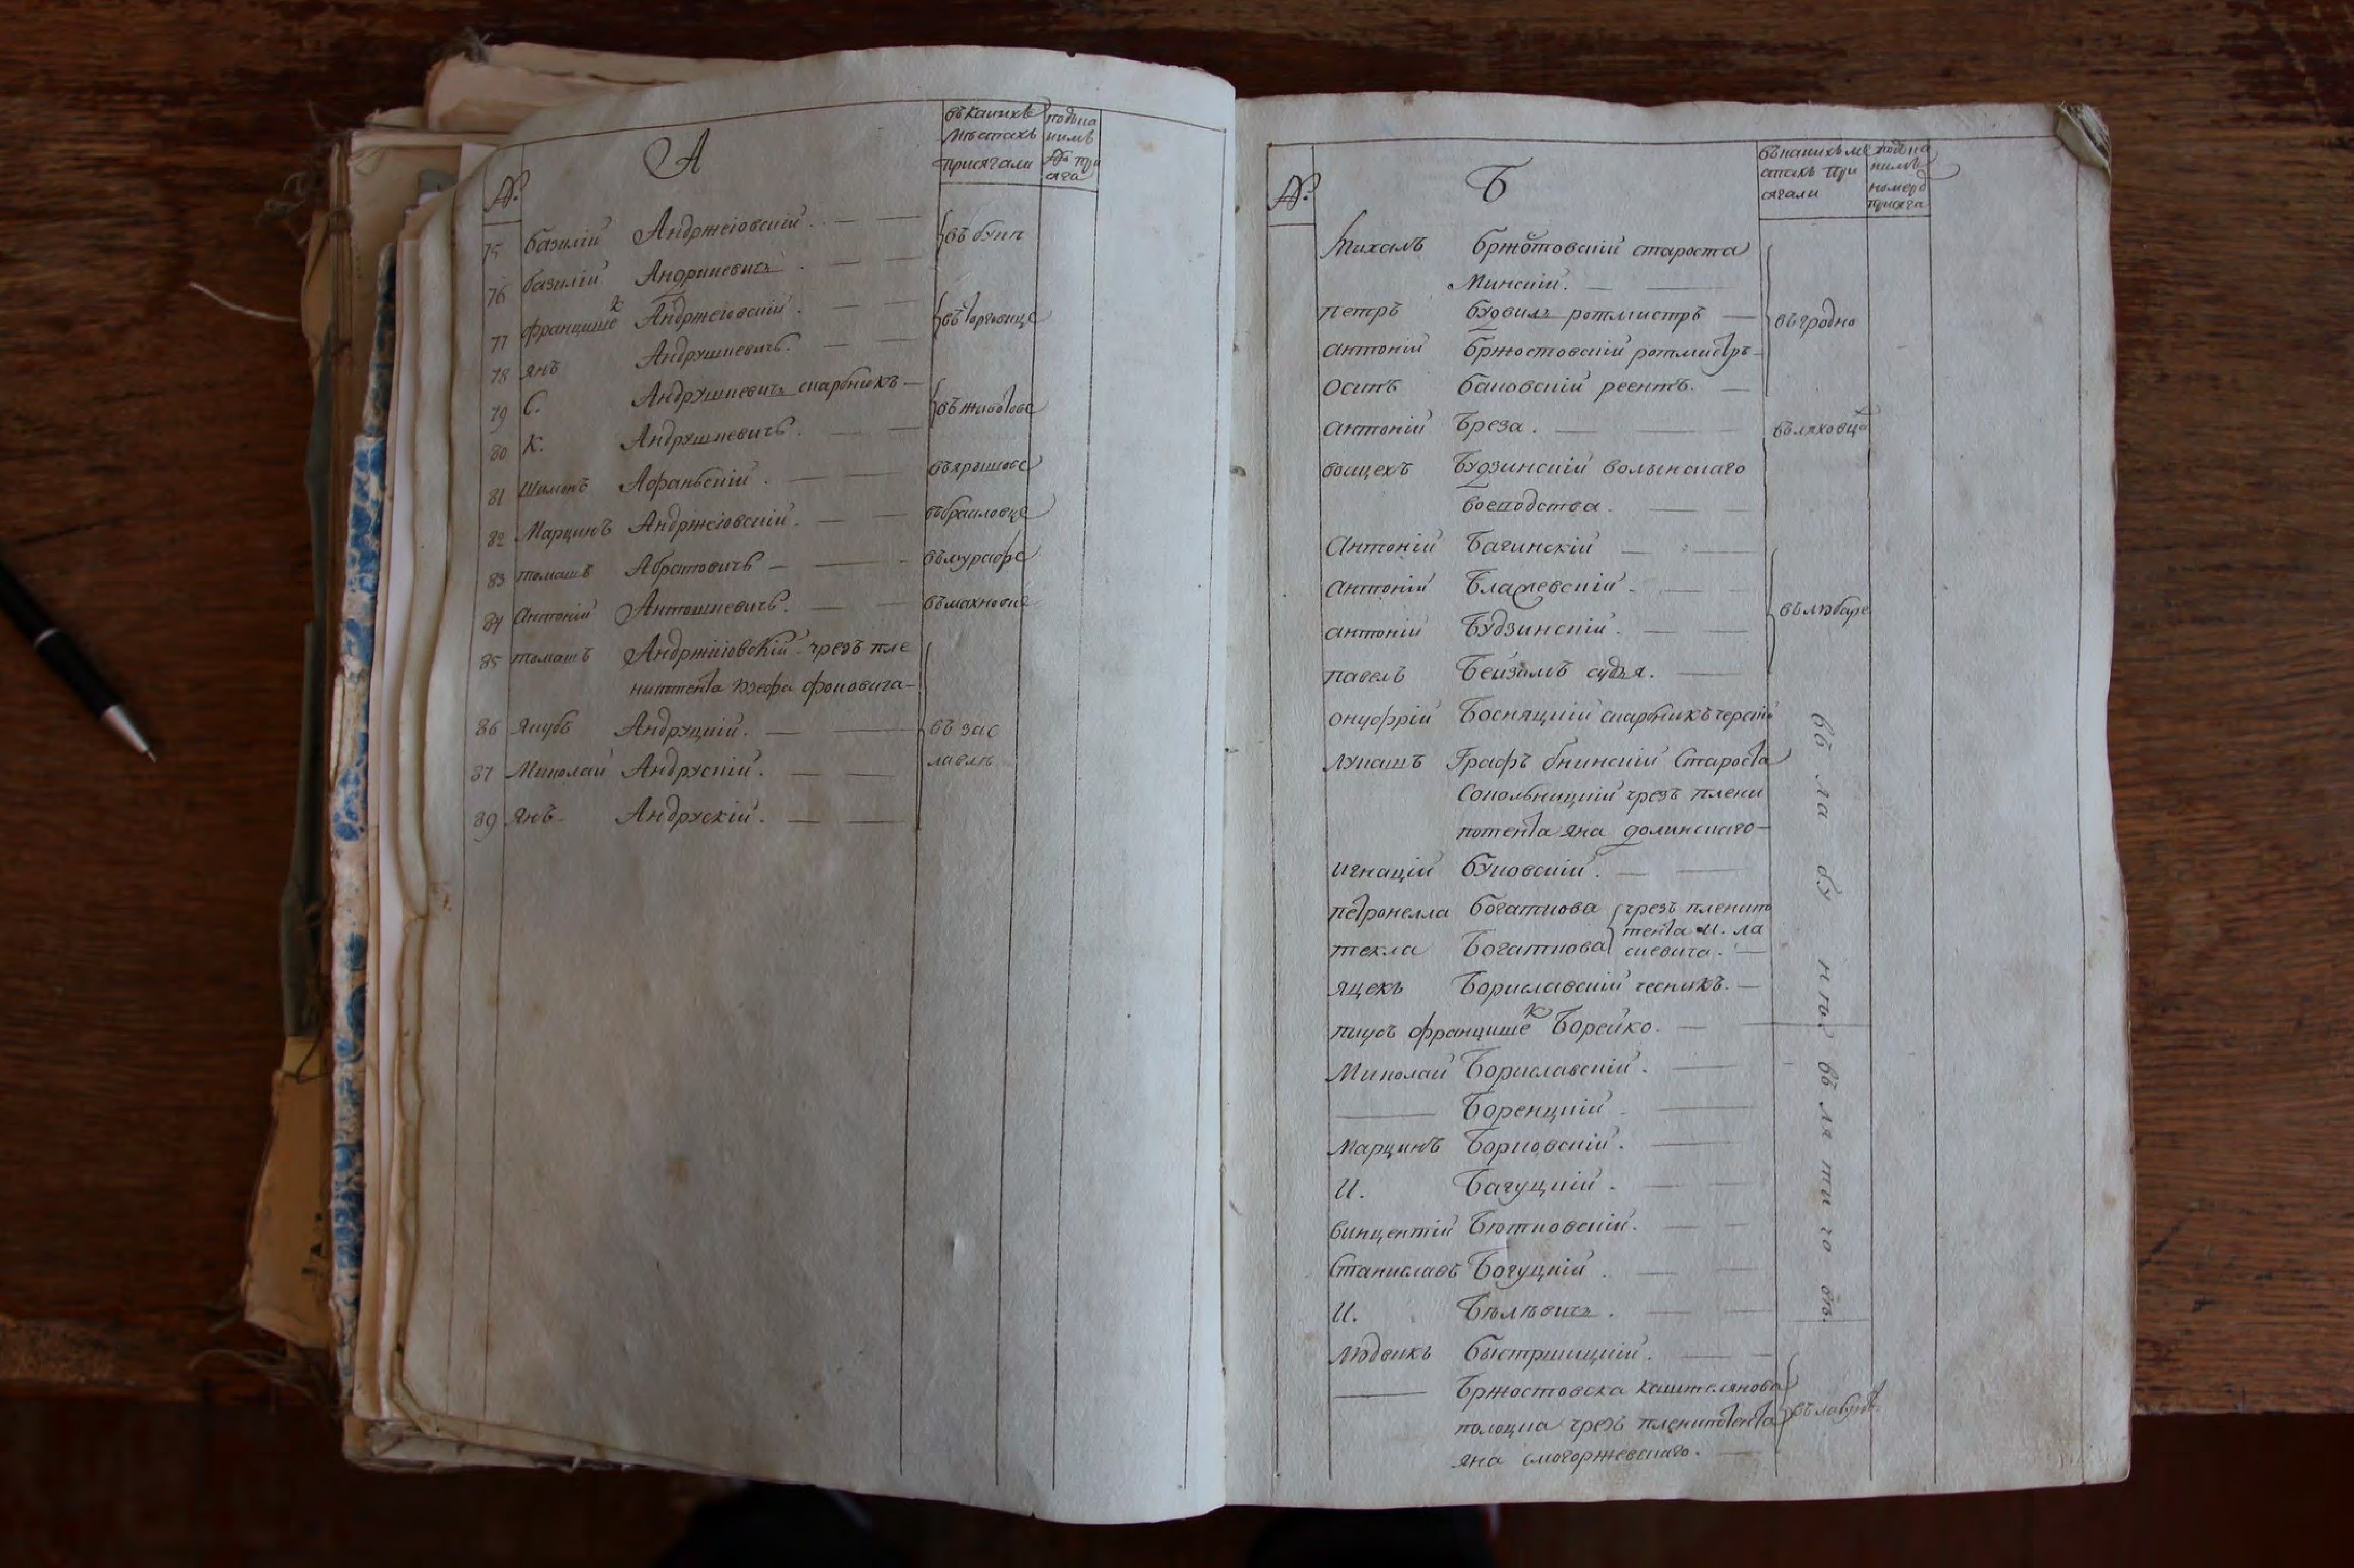 А
№.
въ какихъ
мѣстахъ
присягали
подъ ка
кимъ
№ при
сяга
75 базилій Андржеіовскій.
76 базилій Андрикевичъ.
77 францишек Андржеіовскій.
въ торговице
78 янъ Андрушкевичъ.
79 С. Андрушкевичъ скарбникъ
въ животове
80 К. Андрушкевичъ.
81 Шимонъ
въ ярышове
82 Марцинъ Андржеіовскій.
въ браиловце
83 томашъ Абрамовичъ
въ мурафе
84 Антоній Антошкевичъ.
въ махновке
85 томашъ Андржіiовскій чрезъ пле
нипотента
86 якубъ Андруцкій.
въ зас
лавлѣ
87 Миколай Андрускій.
89 янъ Андрускій.
Б
№.
въ какихъ ме
стахъ при
сягали
подъ ка
кимъ
номеръ
присяга
Михалъ бржостовскій староста
Минскій.
петръ будвилъ ротмистръ
въ гродно
антоній бржостовскій ротмистръ
осипъ баковскій реентъ.
антоній Береза.
въ ляховца
войцехъ Будзинскій волынскаго
воеводства.
Антоній Багинскій
антоній Блажевскій.
въ любаре
антоній Будзинскій.
павелъ Бейзимъ судья.
онуфрій Босняцкій скарбникъ
лукашъ Графъ бнинскій Староста
Сокольницкій чрезъ плени
потента яна долинскаго
игнацій буковскій.
петронелла богаткова чрезъ пленипо
тента И. ла
текла Богаткова скевича.
яцекъ Бориславскій чесникъ.
пиусъ францишек Борейко.
Миколай Бориславскій.
Боренцкій
марцинъ Борковскій.
И. Багуцкій.
винцентій Бютковскій.
Станиславъ Богуцкій.
И. Бѣлѣвичъ.
въ ла бу нѣ.
въ ля ти чо вѣ.
людвикъ быстрицкій.
Бржостовска каштелянова
полоцка чрезъ пленипотента
въ лабунѣ
яна смогоржевскаго.